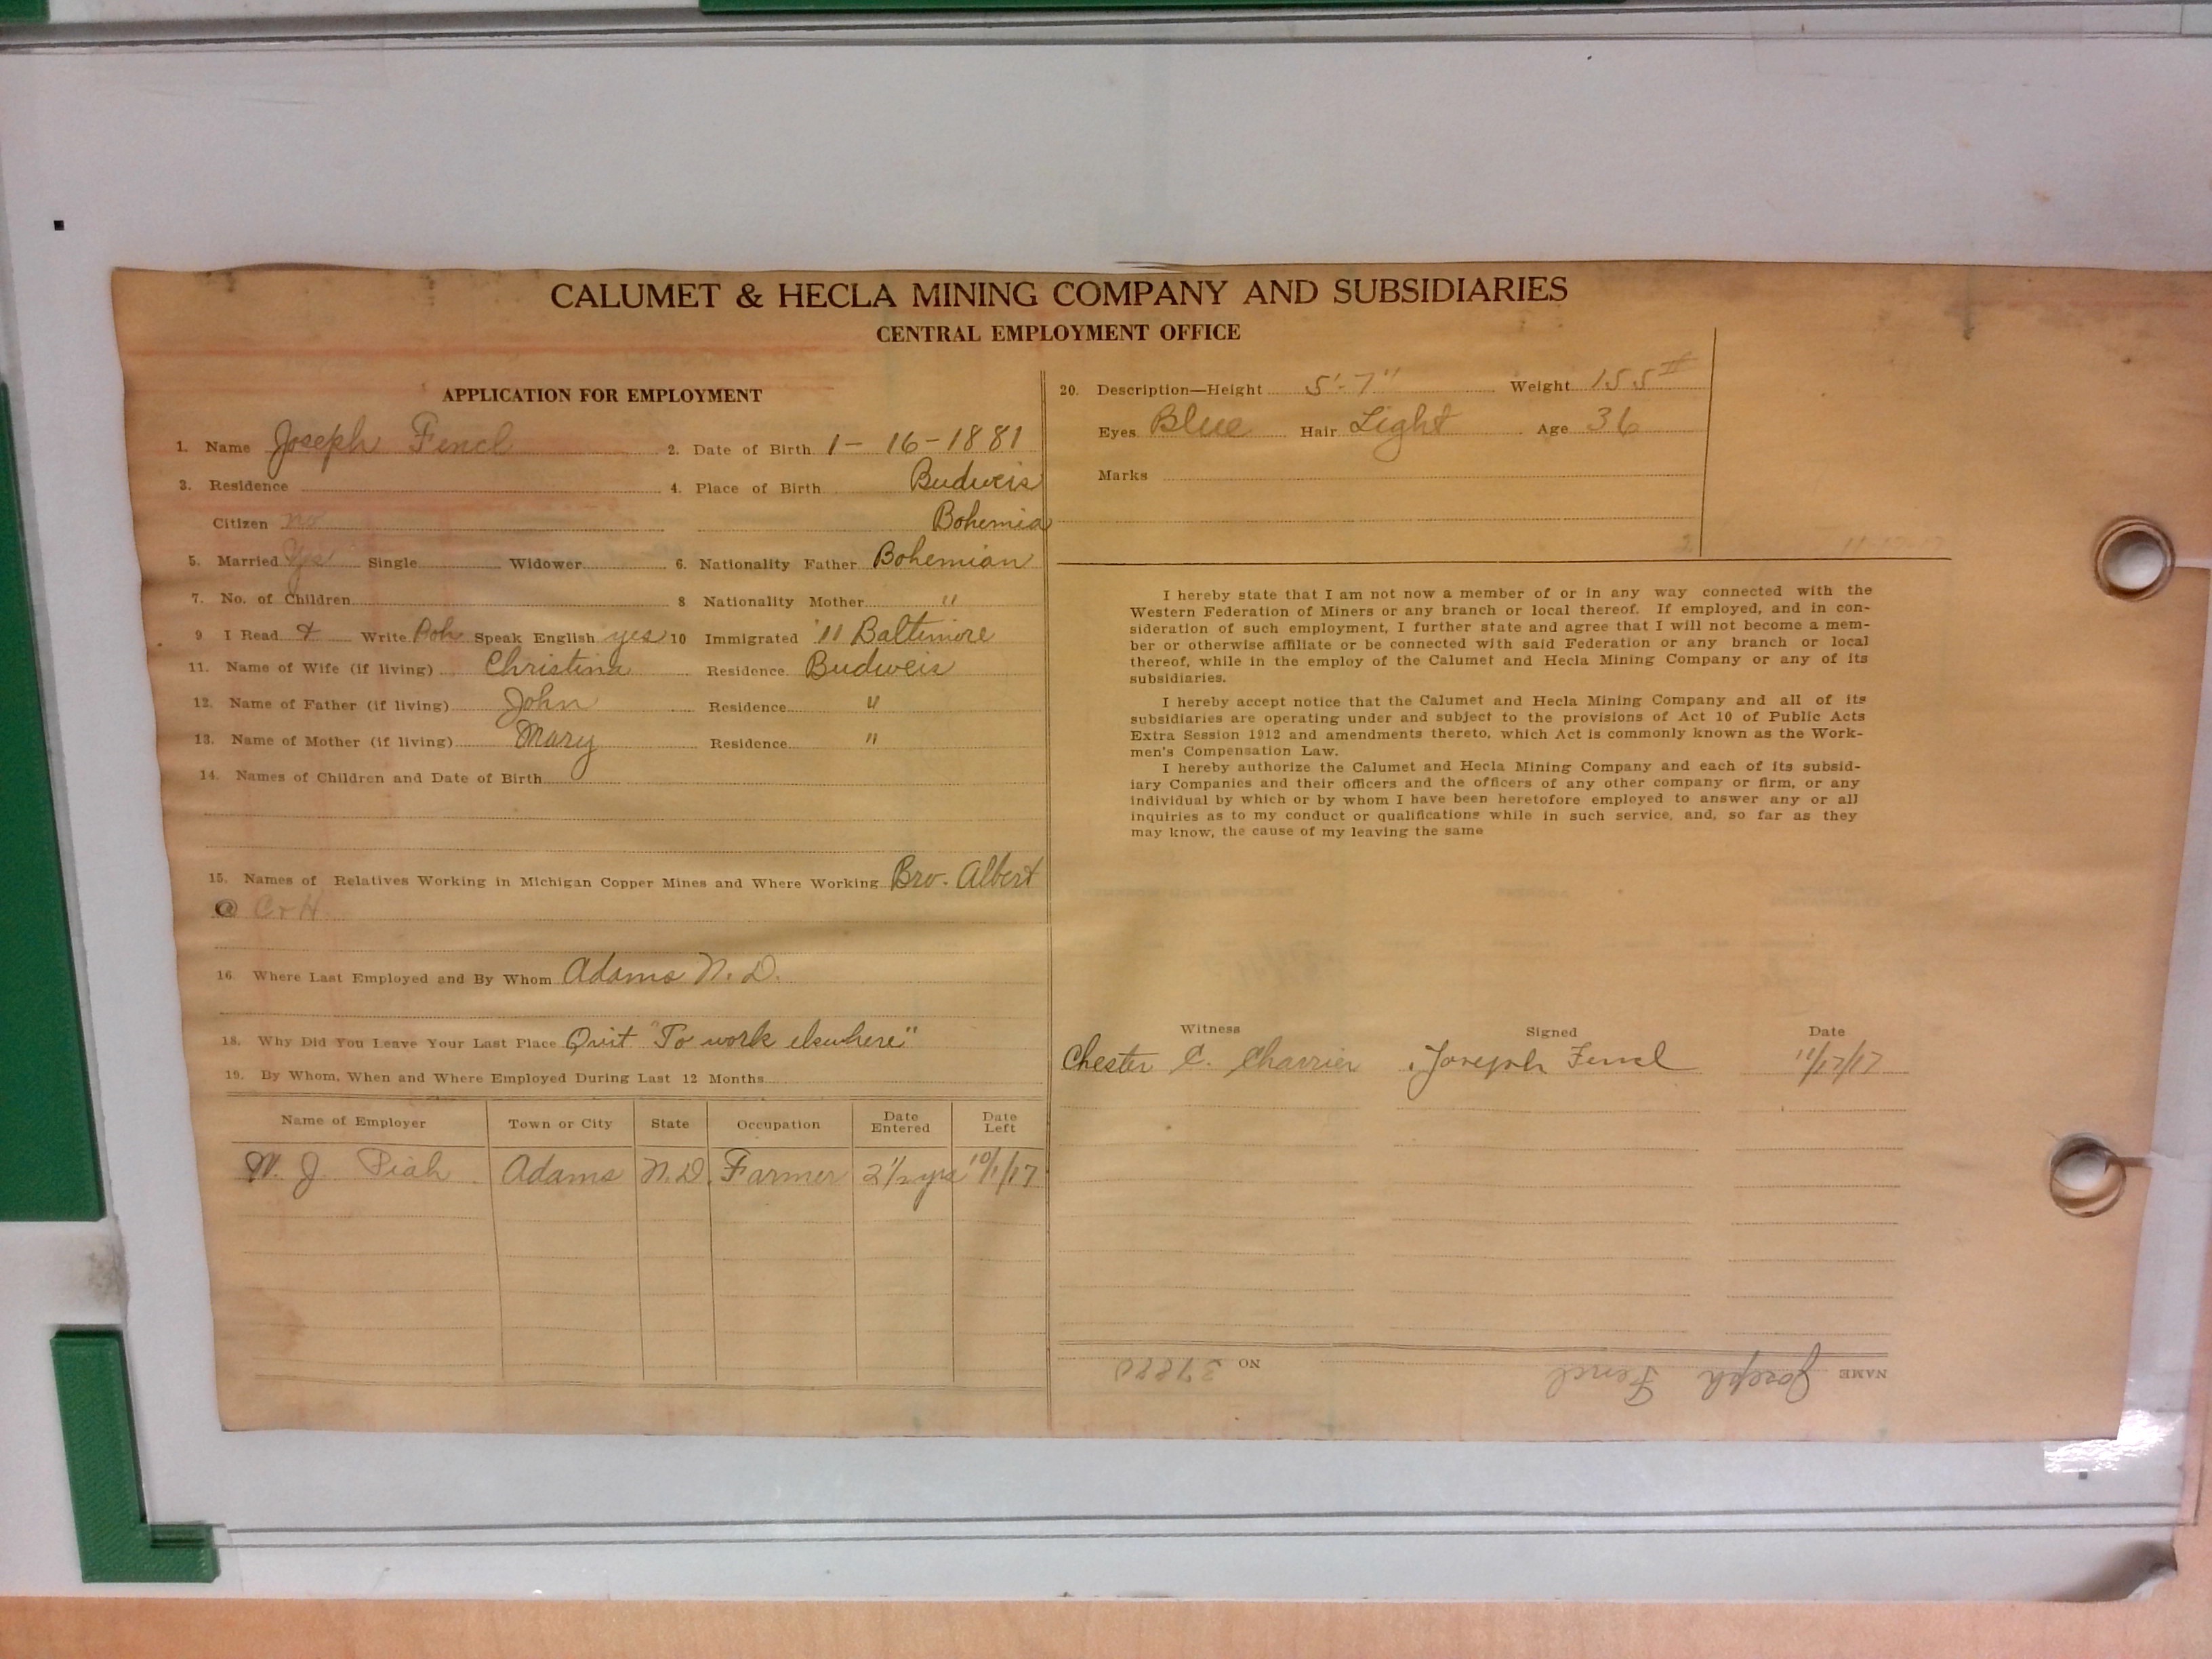 CALUMET & HECLA MINING COMPANY AND SUBSIDIARIES
CENTRAL EMPLOYMENT OFFICE
APPLICATION FOR EMPLOYMENT
1. Name Joseph Fencl 2. Date of Birth 1-16-1881
3. Residence 4. Place of Birth Budweis
Citizen no Bohemia
5. Married Yes Single Widower 6. Nationality Father Bohemian
7. No. of Children 8 Nationality Mother "
9 I Read & Write Boh Speak English yes 10 Immigrated '11 Baltimore
11. Name of Wife (if living) Christina Residence Budweis
12. Name of Father (if living) John Residence "
13. Name of Mother (if living) Mary Residence "
14. Names of Children and Date of Birth
15. Names of Relatives Working in Michigan Copper Mines and Where Working Bro. Albert
@ C & H.
16. Where Last Employed and By Whom Adams N. D.
18. Why Did You Leave Your Last Place Quit "To work elsewhere"
19. By Whom, When and Where Employed During Last 12 Months
Name of Employer Town or City State Occupation Date Entered Date Left
W. J. Adams N.D. Farmer 2 1/2 yrs 10/1/17
20. Description—Height 5'-7" Weight 155#
Eyes Blue Hair Light Age 36
Marks
I hereby state that I am not now a member of or in any way connected with the
Western Federation of Miners or any branch or local thereof. If employed, and in con-
sideration of such employment, I further state and agree that I will not become a mem-
ber or otherwise affiliate or be connected with said Federation or any branch or local
thereof, while in the employ of the Calumet and Hecla Mining Company or any of its
subsidiaries.
I hereby accept notice that the Calumet and Hecla Mining Company and all of its
subsidiaries are operating under and subject to the provisions of Act 10 of Public Acts
Extra Session 1912 and amendments thereto, which Act is commonly known as the Work-
men's Compensation Law.
I hereby authorize the Calumet and Hecla Mining Company and each of its subsid-
iary Companies and their officers and the officers of any other company or firm, or any
individual by which or by whom I have been heretofore employed to answer any or all
inquiries as to my conduct or qualifications while in such service, and, so far as they
may know, the cause of my leaving the same
Witness Signed Date
Chester C. Charrier Joseph Fencl 11/17/17
NAME Joseph Fencl NO 37880